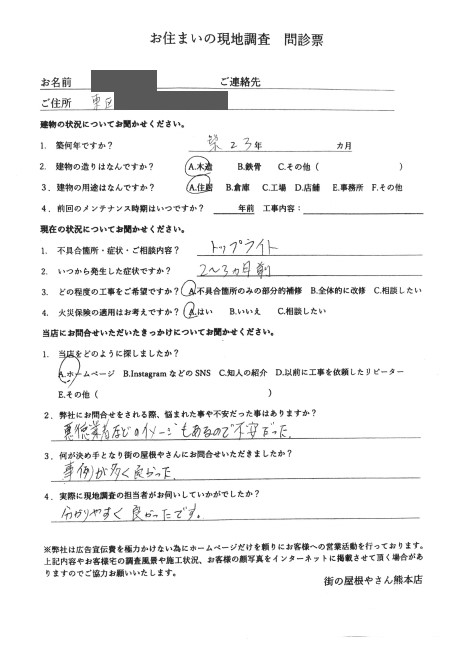 お住まいの現地調査　問診票
お名前　ご連絡先
ご住所　東区
建物の状況についてお聞かせください。
1. 築何年ですか？　築 23年　カ月
2. 建物の造りはなんですか？　A.木造　B.鉄骨　C.その他（　）
3. 建物の用途はなんですか？　A.住居　B.倉庫　C.工場　D.店舗　E.事務所　F.その他
4. 前回のメンテナンス時期はいつですか？　年前　工事内容：
現在の状況についてお聞かせください。
1. 不具合箇所・症状・ご相談内容？　トップライト
2. いつから発生した症状ですか？　2〜3ヵ月前
3. どの程度の工事をご希望ですか？　A.不具合箇所のみの部分的補修　B.全体的に改修　C.相談したい
4. 火災保険の適用はお考えですか？　A.はい　B.いいえ　C.相談したい
当店にお問合せいただいたきっかけについてお聞かせください。
1. 当店をどのように探しましたか？
A.ホームページ　B.InstagramなどのSNS　C.知人の紹介　D.以前に工事を依頼したリピーター
E.その他（　）
2. 弊社にお問合せをされる際、悩まれた事や不安だった事はありますか？
悪徳業者などのイメージもあるので不安だった.
3. 何が決め手となり街の屋根やさんにお問合せいただきましたか？
事例が多く良かった.
4. 実際に現地調査の担当者がお伺いしていかがでしたか？
分かりやすく良かったです。
※弊社は広告宣伝費を極力かけない為にホームページだけを頼りにお客様への営業活動を行っております。
上記内容やお客様宅の調査風景や施工状況、お客様の顔写真をインターネットに掲載させて頂く場合があ
りますのでご協力お願いいたします。
街の屋根やさん熊本店